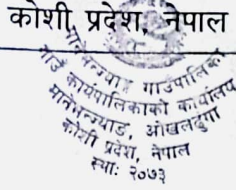 कोशी प्रदेश, नेपाल
मानेभञ्ज्याङ गाउँपालिका
गाउँ कार्यपालिकाको कार्यालय
मानेभन्ज्याङ, ओखलढुंगा
कोशी प्रदेश, नेपाल
स्थाः २०७३